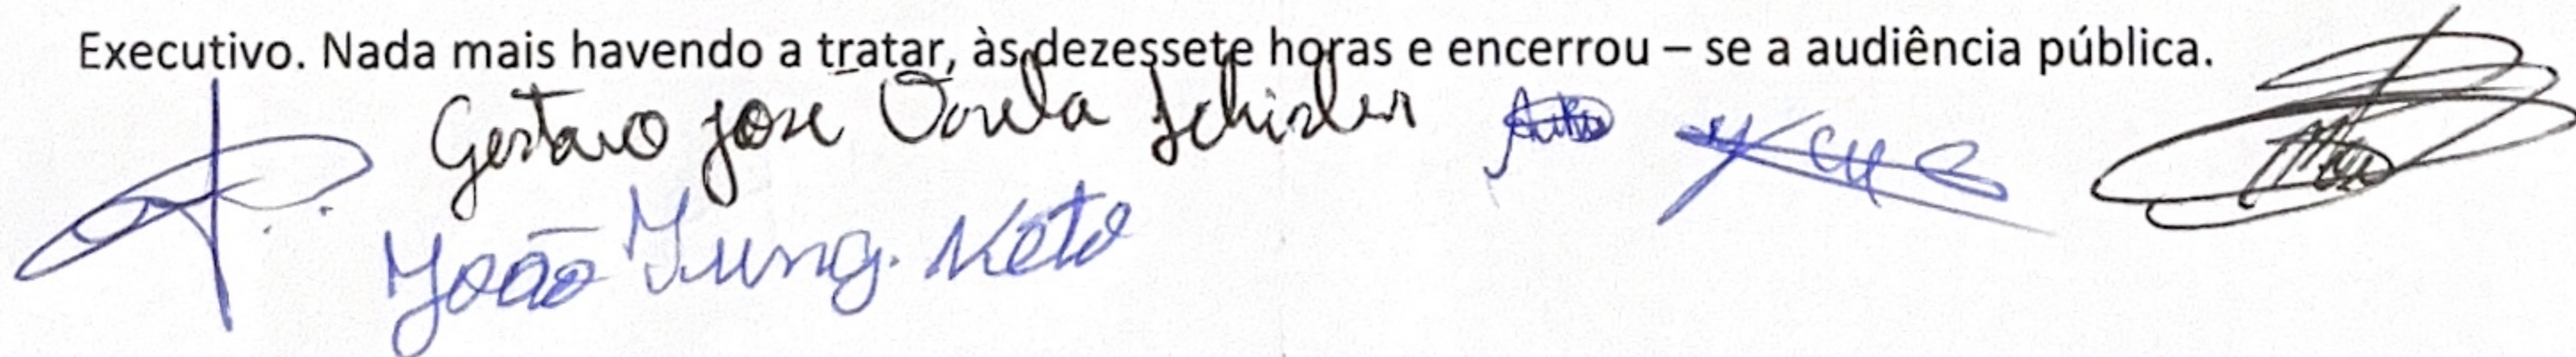 Executivo. Nada mais havendo a tratar, às dezessete horas e encerrou – se a audiência pública.
Gustavo José Varela Schisler
João Jung. Neto